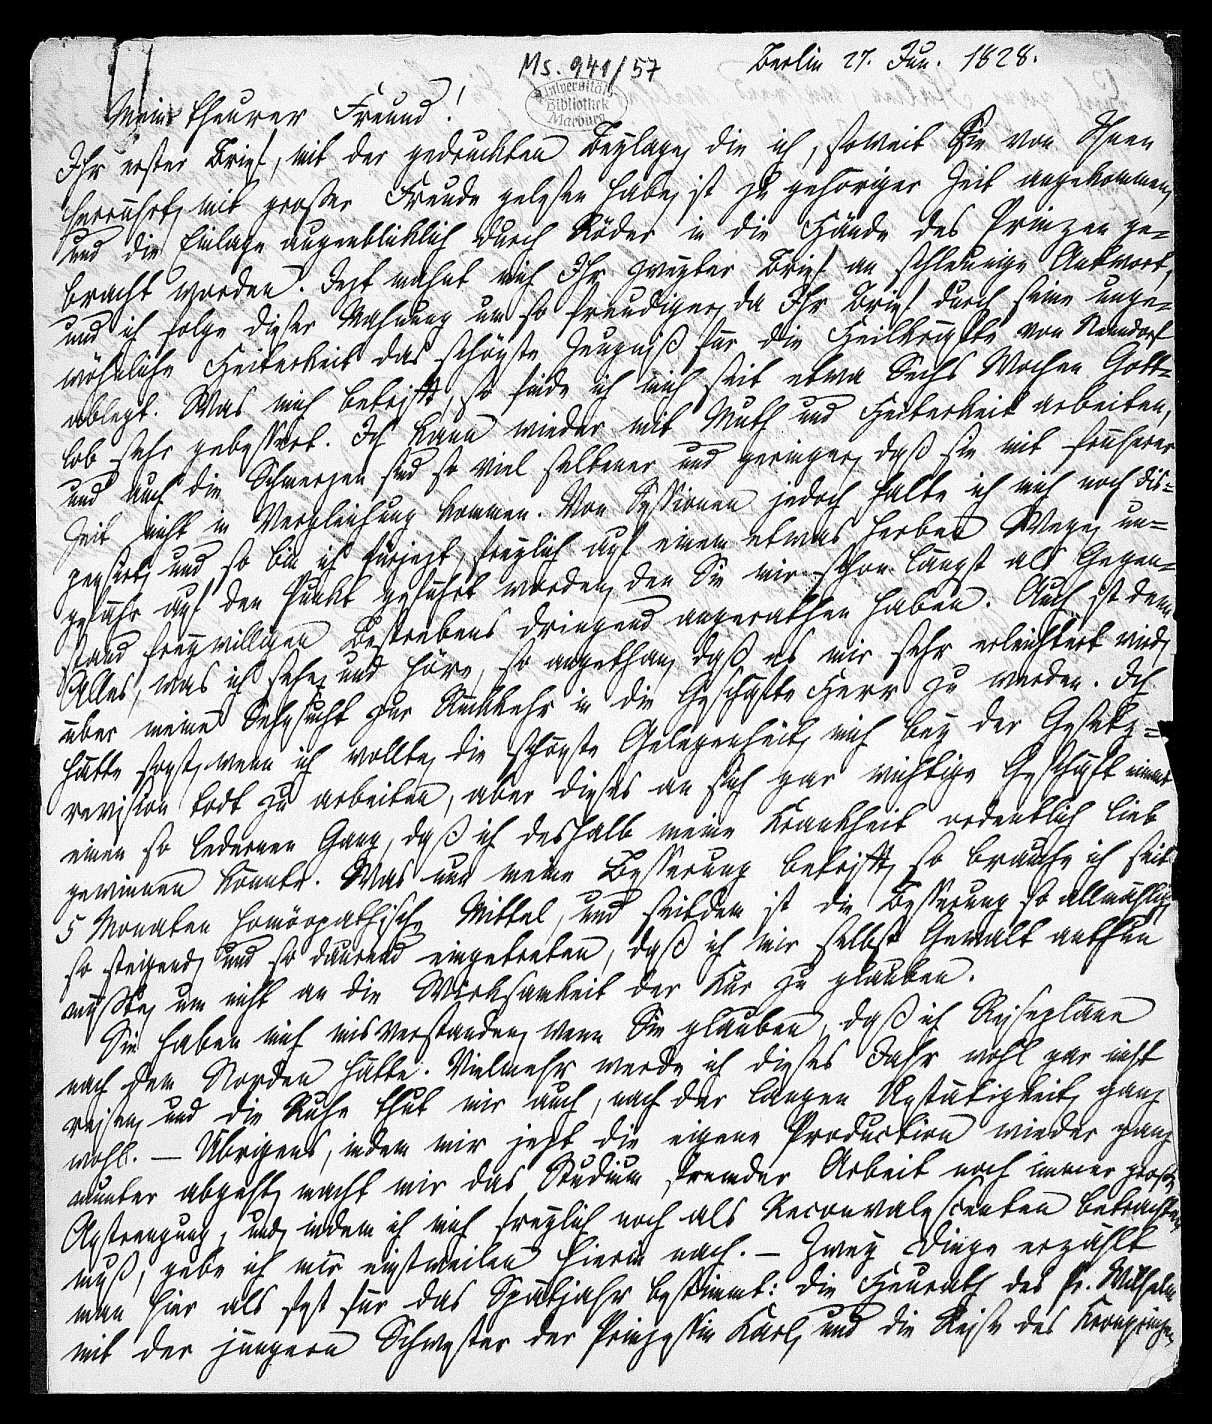 Ms. 941/57
Berlin 27. Jun. 1828.
Universitäts
Bibliothek
Marburg
Mein theurer Freund!
Ihr erster Brief, mit der gedruckten Beylage, die ich, soweit Sie von Ihnen
herrührt, mit großer Freude gelesen habe, ist zu gehöriger Zeit angekommen,
und die Einlage augenbliklich durch Röder in die Hände des Prinzen ge-
bracht worden. Jezt mahnt mich Ihr zweyter Brief an schleunige Antwort,
und ich folge dieser Mahnung um so freudiger, da Ihr Brief durch seine unge-
wöhnliche Heiterkeit das schönste Zeugniß für die Heilkräfte von Nenndorf
ablegt. Was mich betrifft, so finde ich mich seit etwa Sechs Wochen Gott-
lob sehr gebessert. Ich kann wieder mit Muth und Heiterkeit arbeiten,
und auch die Schmerzen sind so viel seltener und geringer, daß sie mit früherer
Zeit nicht in Vergleichung kommen. Von Sessionen jedoch halte ich mich noch dis-
pensirt, und so bin ich fürjezt, freylich auf einem etwas herben Wege, un-
gefähr auf den Punkt geführt worden, den Sie mir schon längst als Gegen-
stand freywilligen Bestrebens dringend angerathen haben. Auch ist denn
Alles, was ich sehe, und höre, so angethan, daß es mir sehr erleichtert wird,
über meine Sehnsucht zur Rückkehr in die Geschäfte Herr zu werden. Ich
hätte sonst, wenn ich wollte, die schönste Gelegenheit, mich bey der Gesetz-
revision todt zu arbeiten, aber dieses an sich gar wichtige Geschäft nimmt
einen so ledernen Gang, daß ich deshalb meine Krankheit ordentlich lieb
gewinnen könnte. Was nun meine Besserung betrifft, so brauche ich seit
5 Monaten homöopathische Mittel, und seitdem ist die Besserung so allmählig,
so steigend, und so daurend eingetreten, daß ich mir selbst Gewalt anthun
müßte, um nicht an die Wirksamkeit der Kur zu glauben.
Sie haben mich misverstanden, wenn Sie glauben, daß ich Reiseplane
nach dem Norden hätte. Vielmehr werde ich dieses Jahr wohl gar nicht
reisen, und die Ruhe thut mir auch, nach der langen Unstätigkeit, ganz
wohl. — Übrigens, indem mir jezt die eigene Production wieder ganz
munter abgeht, macht mir das Studium fremder Arbeit noch immer große
Anstrengung, und, indem ich mich freylich noch als Reconvalescenten betrachten
muß, gebe ich mir einstweilen hierin nach. — Zwey Dinge erzählt
man hier als fest für das Spätjahr bestimmt: die Heurath des Pr. Wilhelm
mit der jüngern Schwester der Prinzessin Karl, und die Reise des Kronprinzen